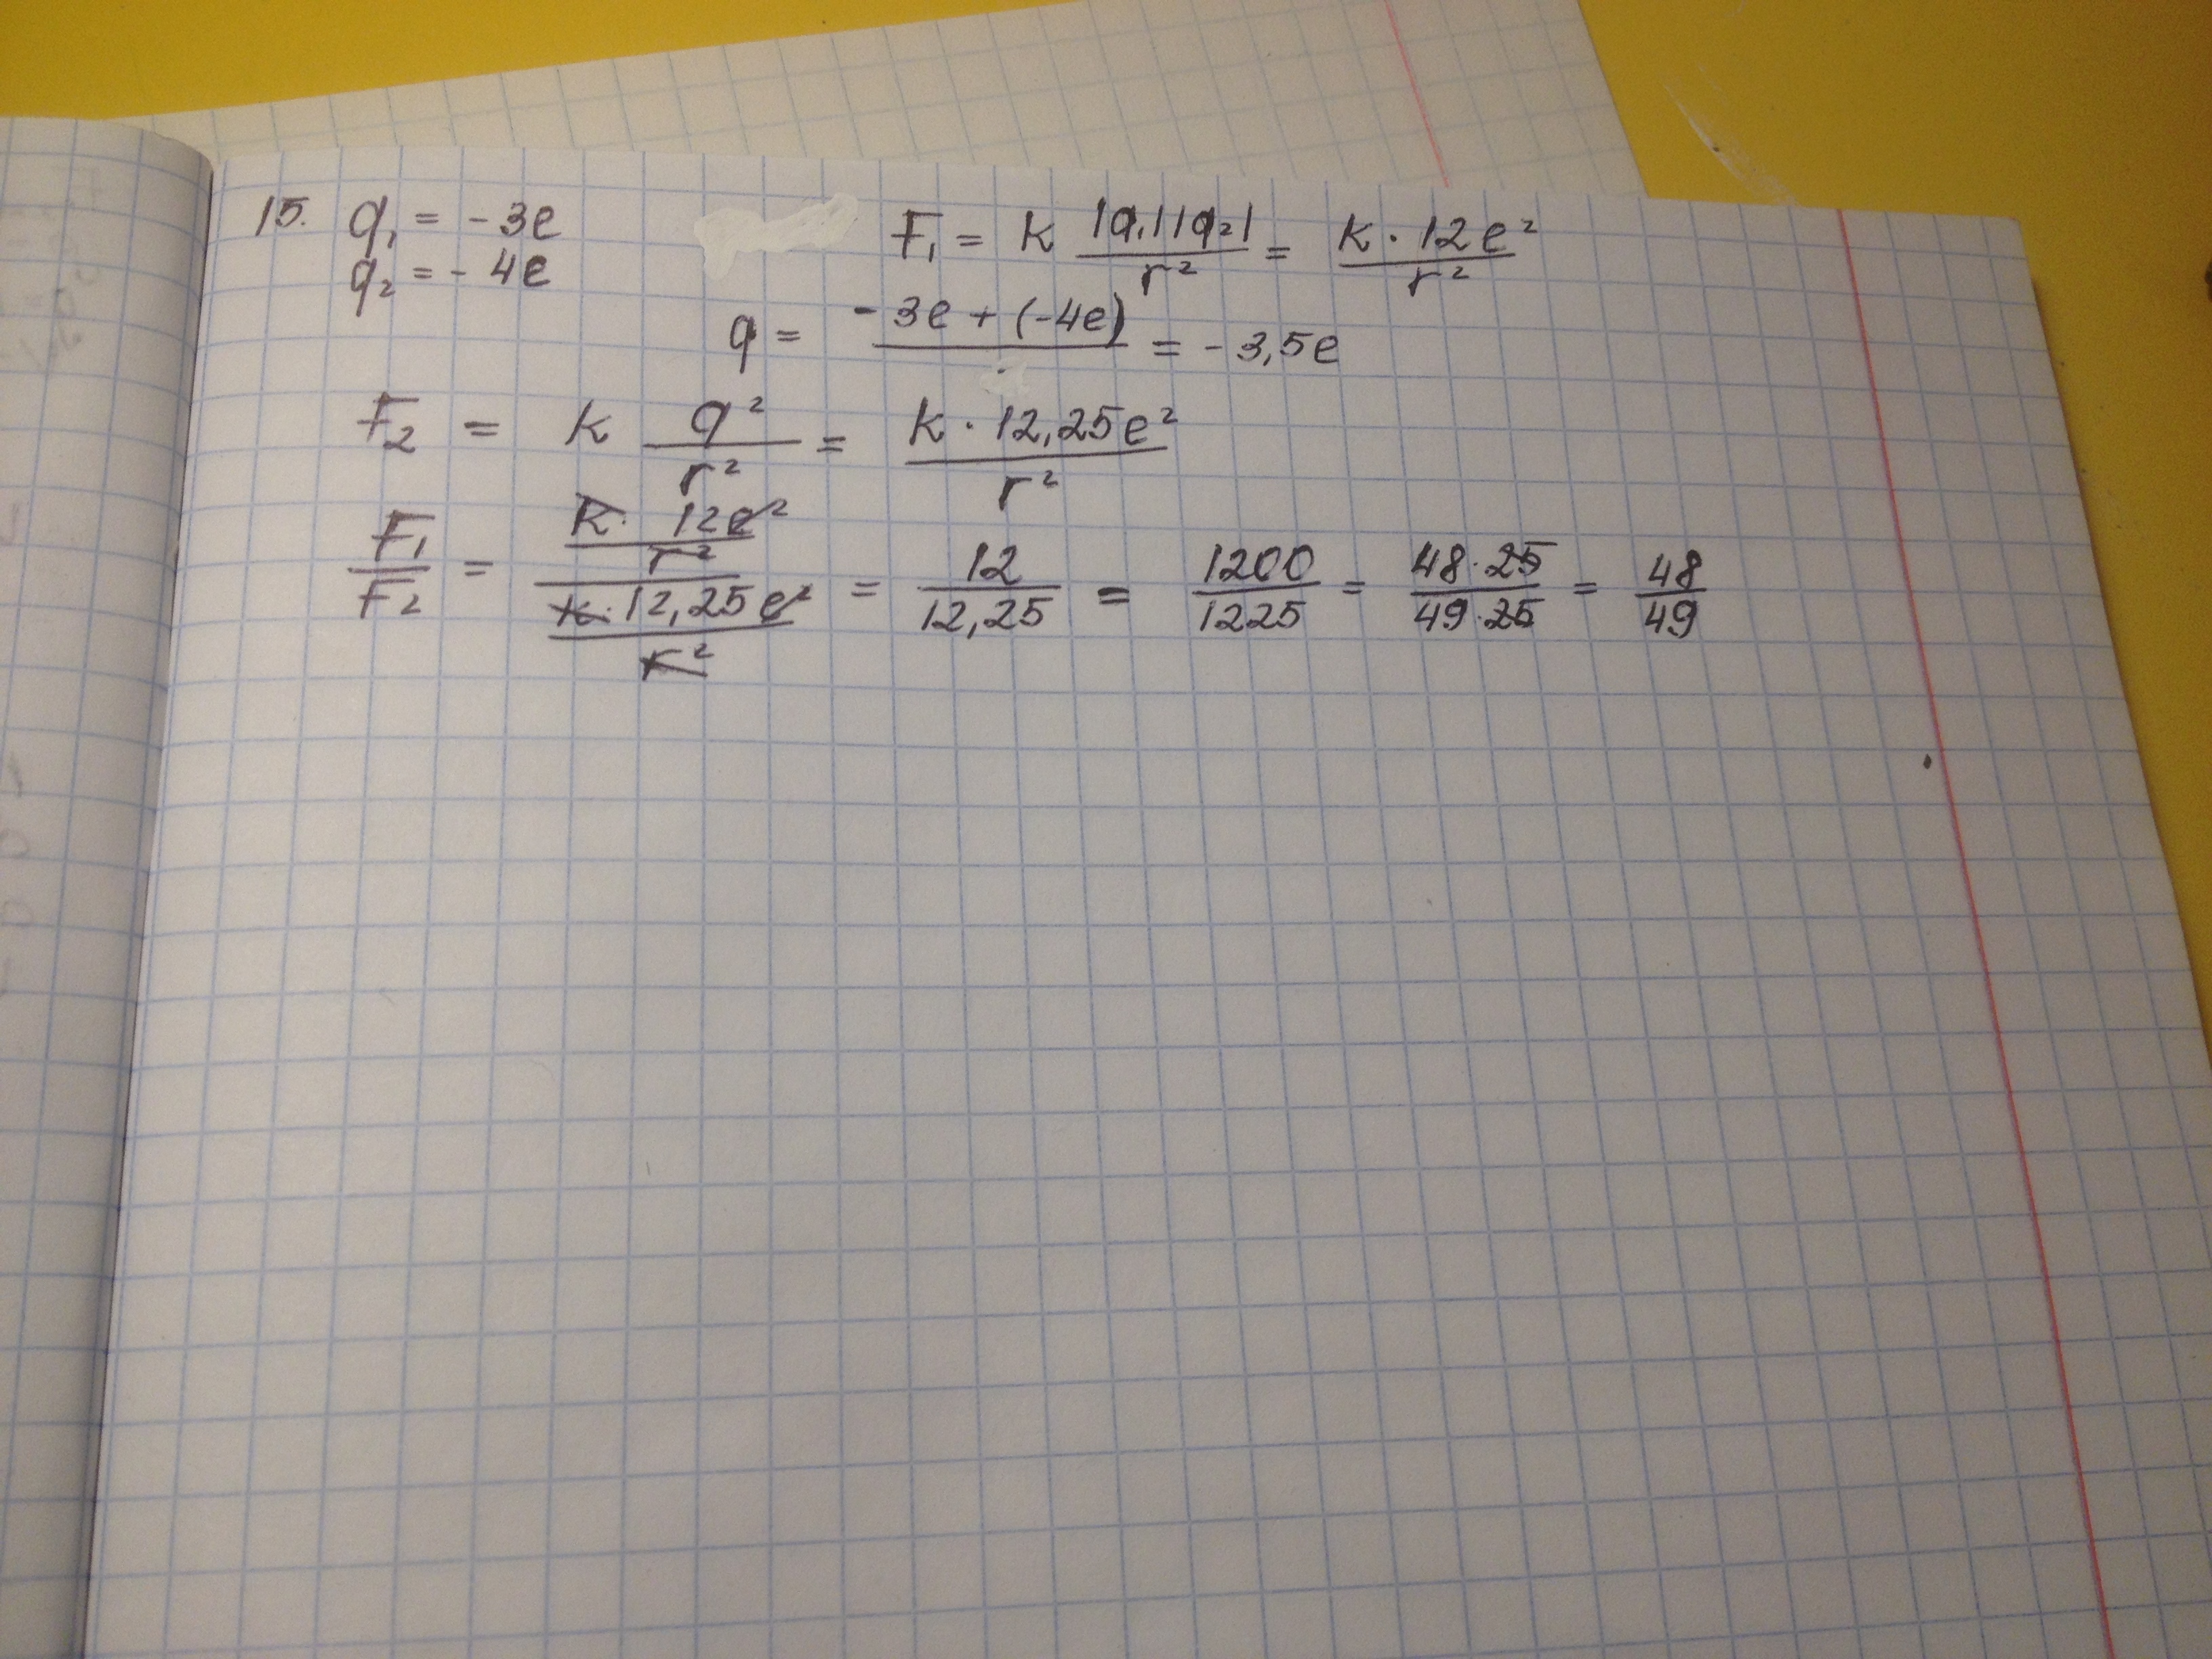 15. q₁ = - 3e
q₂ = - 4e
F₁ = K |q₁||q₂| / r² = K · 12e² / r²
q = - 3e + (-4e) / = - 3,5e
F₂ = K q² / r² = K · 12,25e² / r²
F₁ / F₂ = K · 12e² / r² / K · 12,25e² / r² = 12 / 12,25 = 1200 / 1225 = 48 · 25 / 49 · 25 = 48 / 49